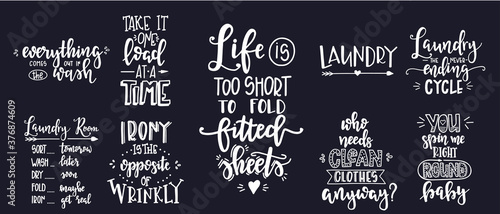 everything
COMES OUT IN
THE wash
Laundry Room
SORT __ tomorrow
WASH __ later
DRY __ soon
FOLD __ maybe
IRON __ get real
TAKE IT
ONE
load
AT A
TIME
IRONY
IS THE
opposite
OF
WRINKLY
Life IS
TOO SHORT
TO FOLD
fitted
sheets
LAUNDRY
who
needs
CLEAN
CLOTHES
anyway?
Laundry
THE NEVER
ending
CYCLE
YOU
spin me
RIGHT
ROUND
baby
Adobe Stock | #376874609